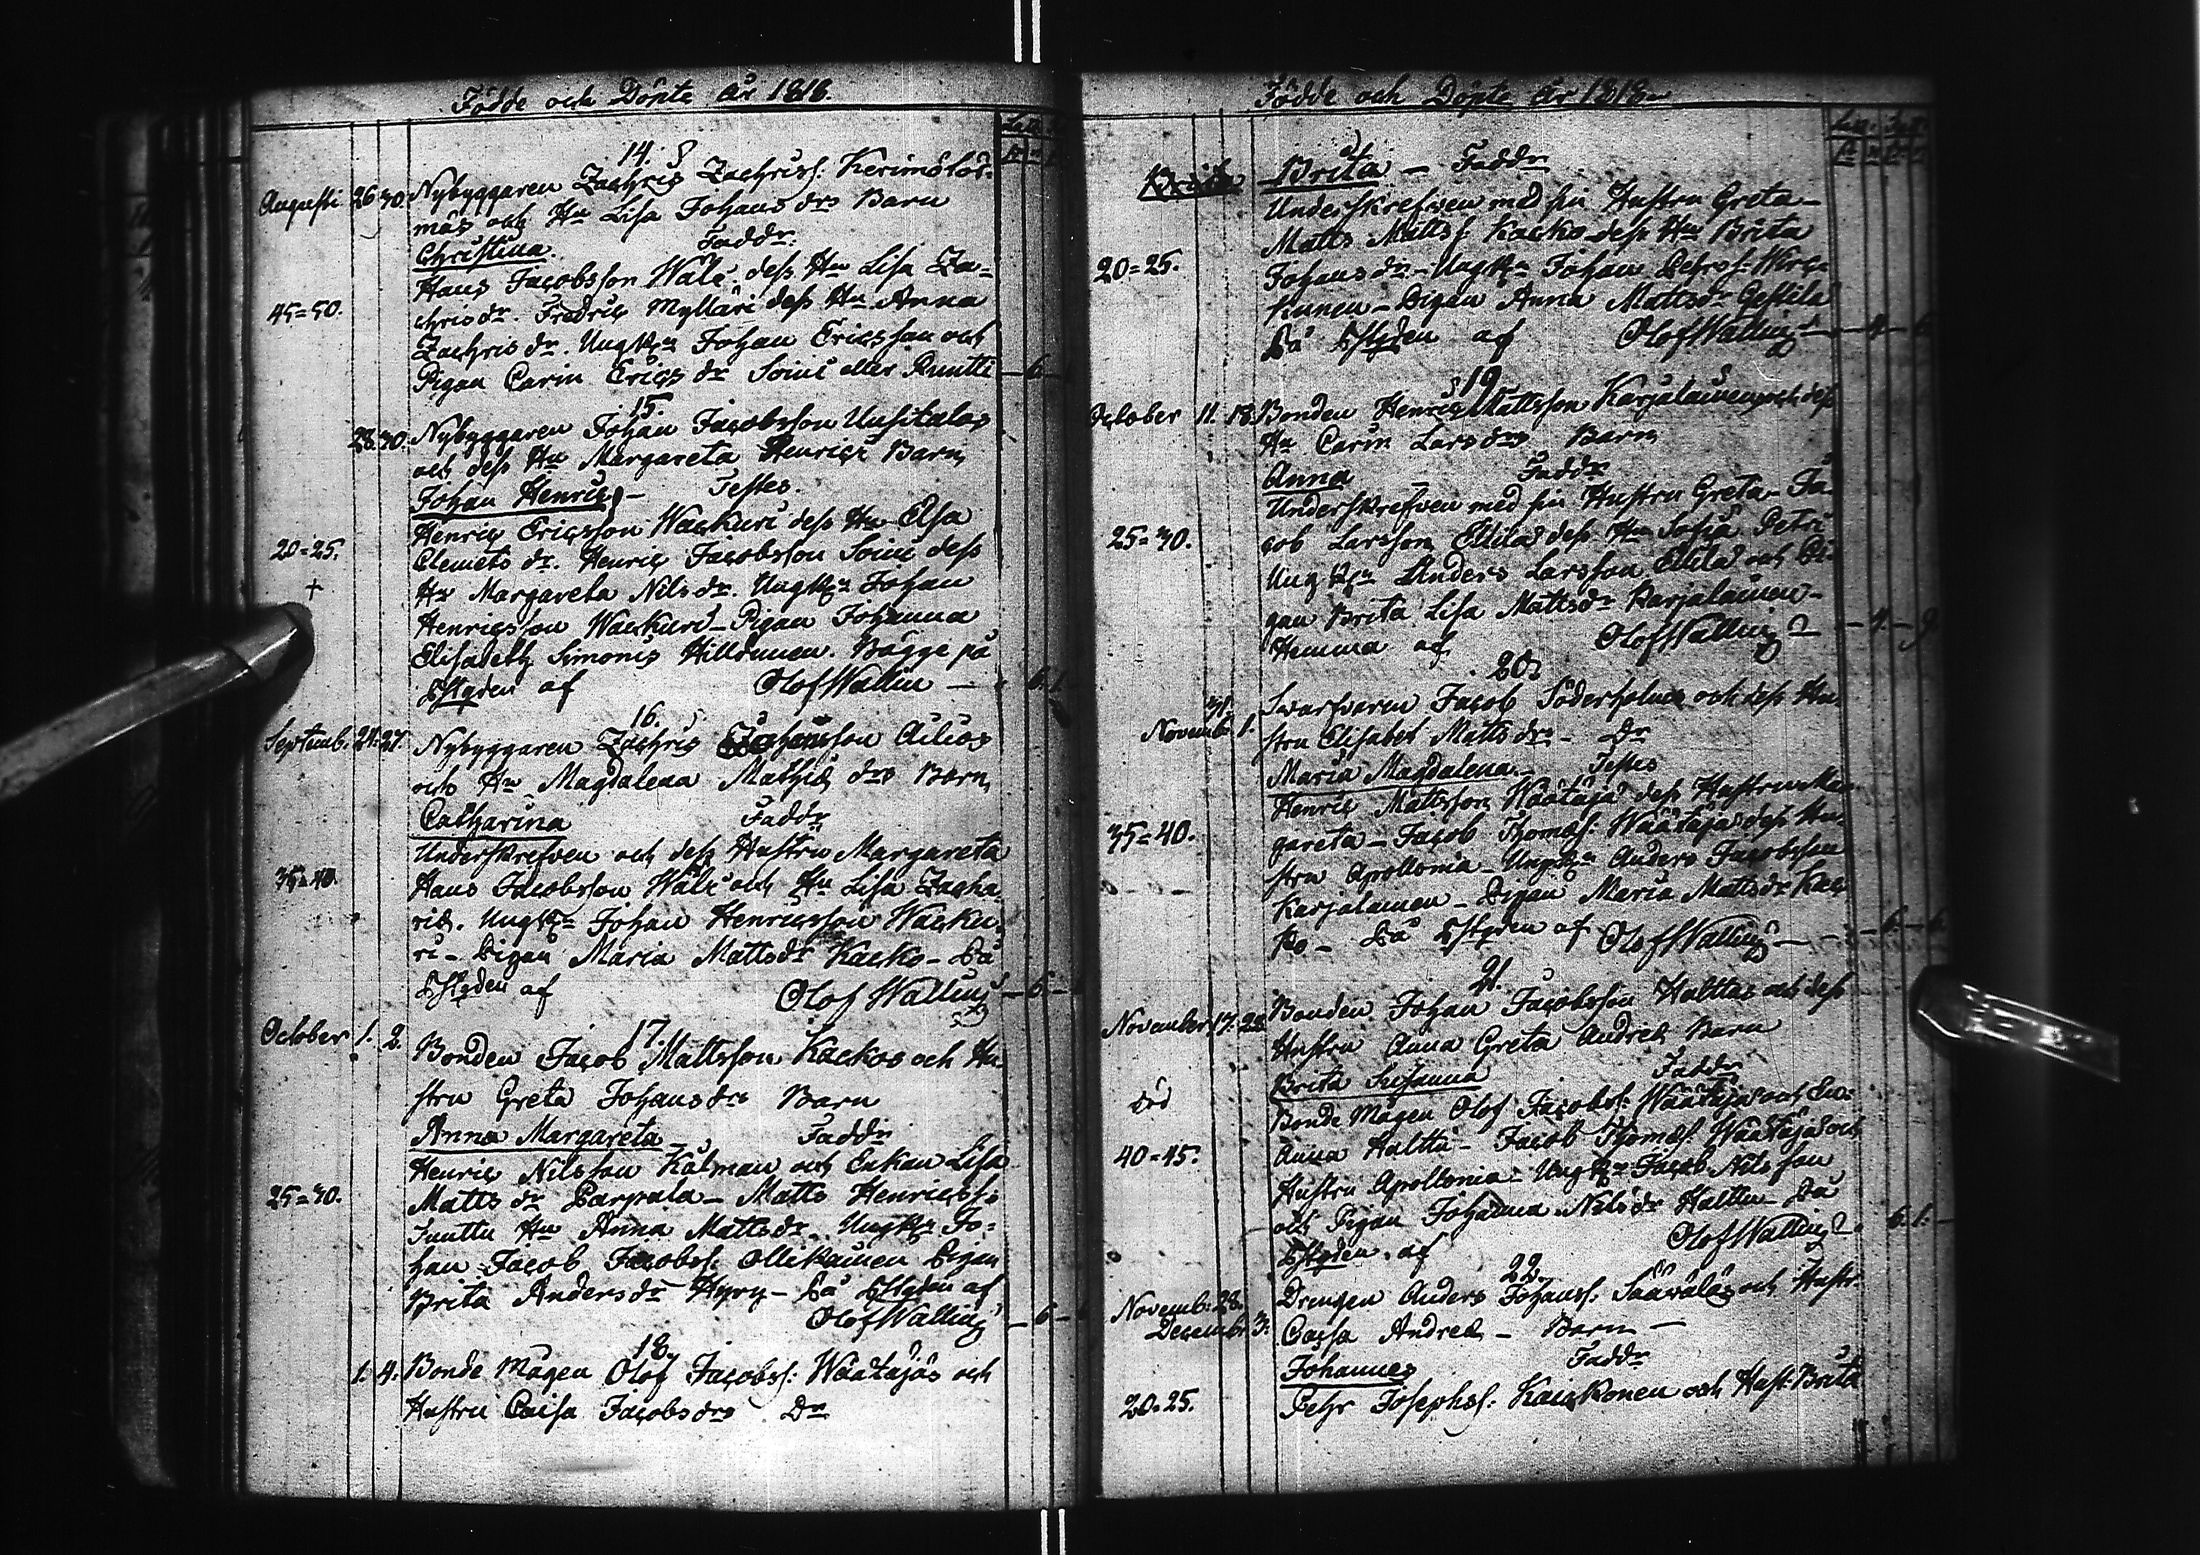 Födde och Döpte år 1818
14.
Augusti 26 30. Nybyggaren Zachris Zachriss:
mäs och Hu Lisa Johans drs Barn
Christina. Faddr:
Hans Jacobsson Wäli dess Hu Lisa Za=
45=50. chris dr. Fredric Mylläri dess Hu Anna
Zachris dr. Ungkn Johan Ericsson och
Pigan Carin Erics dr Soini eller Runtti — 6
15.
28. 30. Nybyggaren Johan Jacobsson Uusitalos
och dess Hu Margareta Henrici Barn
Johan Henric — Testes.
Henric Ericsson Wackuri dess Hu Elsa
20=25. Clemets dr. Henric Jacobsson Soini dess
+ Hu Margareta Nils dr. Ungkn Johan
Henricsson Wackuri — Pigan Johanna
Elisabeth Simonis Hillonen. Bägge på
af Olof Wallin — 6. 1
16.
Septemb. 24. 27. Nybyggaren Zachris Ailios
och Hu Magdalena Mathiæ drs Barn
Catharina Faddr
Underskrefven och dess Hustru Margareta
35=40. Hans Jacobsson Wäli och Hu Lisa Zacha=
riæ. Ungkn Johan Henricsson Wacku=
ri — Pigan Maria Mattsdr Kacko — På
af Olof Walling — 6.
17.
October 1. 2. Bonden Jacob Mattsson Kackos och Hu
stru Greta Johans drs Barn
Anna Margareta Faddr
Henric Nilsson Kälman och Enkan Lisa
25=30. Matts dr Parpala — Matts Henricss:
Suuttu Hu Anna Mattsdr. Ungkn Jo=
han Jacob Jacobss: Ollikainen Pigan
Brita Anders dr Hyry — På af
Olof Walling — 6
18.
1. 4. Bonde Mågen Olof Jacobss: Wäätäjäs och
Hustru Caisa Jacobsdrs Dr
Födde och Döpte år 1818
Brita Brita — Faddr
Underskrefven med sin Hustru Greta —
Matts Mattss: Kacko dess Hu Brita
20=25. Johans dr — Ungkn Johan Pehrss:
kunen — Pigan Anna Mattsdr
På af Olof Walling — 4 — 6
19.
October 11. 18. Bonden Henric Mattsson Karjalainen och dess
Hu Carin Lars drs Barn
Anna — Faddr
Underskrefven med sin Hustru Greta — Ja=
25=30. cob Larsson Ellilä dess Hu Sofia Petri
Ungkn Anders Larsson Ellilä och Pi=
gan Brita Lisa Mattsdr Karjalainen —
Hemma af Olof Walling — 4. — 9.
20.
31. Svarfvaren Jacob Söderholms och dess Hu=
Novemb. 1. stru Elisabet Mattsdrs — Dr
Maria Magdalena. — Testes
Henric Mattsson Wäätäjä dess Hustru Mar
35=40. gareta — Jacob Thomæs: Wäätäjä dess Hu=
stru Apollonia — Ungkn Anders Jacobsson
Karjalainen — Pigan Maria Mattsdr Kac=
ko — På af Olof Walling — 6. — 6.
21.
November 17. 22. Bonden Johan Jacobsson Halttas och dess
Hustru Anna Greta Andreæ Barn
Brita Susanna Faddr
död Bonde Mågen Olof Jacobss: Wäätäjä och
Anna Halttu — Jacob Thomæs: Wäätäjä och
40=45. Hustru Apollonia — Ungkn Jacob Nilsson
och Pigan Johanna Nilsdr Halttu — På
af Olof Walling 6. 1. —
22.
Novemb. 28. Drengen Anders Johanss: Säävälä och Hustr
Decembr 3. Caisa Andreæ — Barn —
Johannes Faddr
20=25. Pehr Josephss: Kauckonen och Hust: Brita